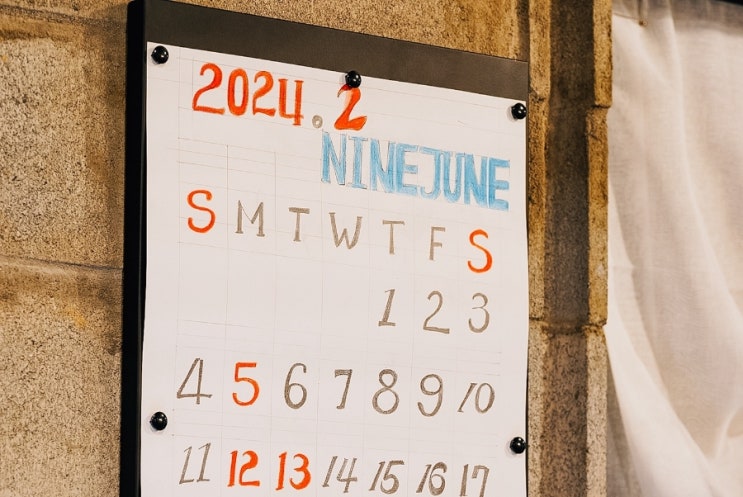 2024.2
NINEJUNE
S M T T W T F S
1 2 3
4 5 6 7 8 9 10
11 12 13 14 15 16 17